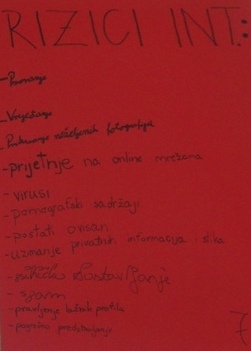 RIZICI INT.:
- Poznanje
- Vrijeđanje
- Prikazivanje neželjenih fotografija
- prijetnje na online mrežama
- virusi
- pornografski sadržaji
- postati ovisan
- uzimanje privatnih informacija i slika
- spam
- pravljenje lažnih profila
- pogrešno predstavljanje
7